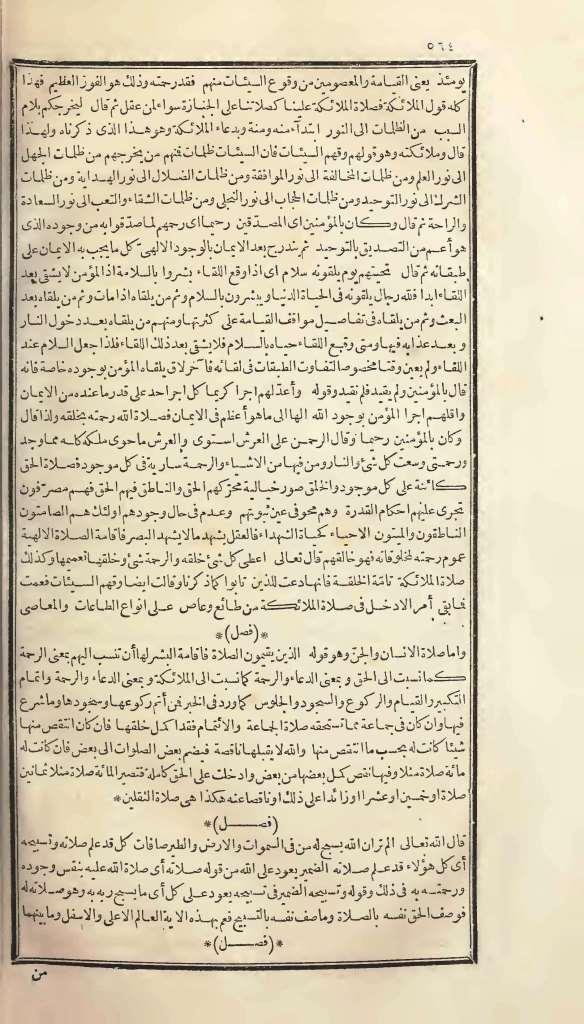 ٥٦٤
يومئذ يعنى القيامة والمعصومين من وقوع السيئات منهم فقد رحمته وذلك هو الفوز العظيم فهذا
كله قول الملائكة فصلاة الملائكة علينا كصلاتنا على الجنازة سواء لمن عقل ثم قال ليخرجكم بلام
السبب من الظلمات الى النور ابتداء منه ومنة وبدعاء الملائكة وهو هذا الذى ذكرناه ولهذا
قال وملائكته وهو قولهم وقهم السيئات فان السيئات ظلمات فمنهم من يخرجهم من ظلمات الجهل
الى نور العلم ومن ظلمات المخالفة الى نور الموافقة ومن ظلمات الضلال الى نور الهداية ومن ظلمات
الشرك الى نور التوحيد ومن ظلمات الحجاب الى نور التجلى ومن ظلمات الشقاء والتعب الى نور السعادة
والراحة ثم قال وكان بالمؤمنين اى المصدقين رحيما اى رحمهم لما صدقوا به من وجوده الذى
هو أعم من التصديق بالتوحيد ثم يندرج بعد الايمان بالوجود الالهى كل ما يجب به الايمان على
طبقاته ثم قال تحيتهم يوم يلقونه سلام اى اذا وقع اللقاء بشروا بالسلامة اذ المؤمن لا يشقى بعد
اللقاء ابدا فلله رجال يلقونه فى الحياة الدنيا ويبشرون بالسلام وثم من يلقاه اذا مات وثم من يلقاه بعد
البعث وثم من يلقاه فى تفاصيل مواقف القيامة على كثرتها ومنهم من يلقاه بعد دخول النار
وبعد عذابه فيها ومتى وقع اللقاء حياه بالسلام فلا يشقى بعد ذلك اللقاء فلذا جعل السلام عند
اللقاء ولم يعين وقتا مخصوصا لتفاوت الطبقات فى لقائه فآخر لاق يلقاه المؤمن بوجوده خاصة فانه
قال بالمؤمنين ولم يقيد فلم نقيد وقوله وأعد لهم اجرا كريما كل اجر احد على قدر ما عنده من الايمان
واقلهم اجرا المؤمن بوجود الله الها الى ما هو أعظم فى الايمان فصلاة الله رحمته بخلقه ولذا قال
وكان بالمؤمنين رحيما وقال الرحمن على العرش استوى والعرش ما حوى ملكه كله مما وجد
ورحمتى وسعت كل شئ والنار ومن فيها من الاشياء والرحمة سارية فى كل موجود فصلاة الحق
كائنة على كل موجود والخلق صور خيالية محركهم الحق والناطق فيهم الحق فهم مصرفون
تجرى عليهم احكام القدرة وهم محو فى عين ثبوتهم وعدم فى حال وجودهم اولئك هم الصامتون
الناطقون والميتون الاحياء كحياة الشهداء فالعقل يشهد ما لا يشهد البصر فاقامة الصلاة الالهية
عموم رحمته لمخلوقاته فهو خالقهم قال تعالى اعطى كل شئ خلقه والرحمة شئ وخلقها تعميمها وكذلك
صلاة الملائكة تامة الخلقة فانها دعت للذين تابوا كما ذكرنا وقالت ايضا وقهم السيئات فعمت
فما بقى أمر الا دخل فى صلاة الملائكة من طائع وعاص على انواع الطاعات والمعاصى
*(فصل)*
واما صلاة الانسان والجن وهو قوله الذين يقيمون الصلاة فاقامة البشر لها أن تنسب اليهم بمعنى الرحمة
كما نسبت الى الحق وبمعنى الدعاء والرحمة كما نسبت الى الملائكة وبمعنى الدعاء والرحمة واتمام
التكبير والقيام والركوع والسجود والجلوس كما ورد فى الخبر فمن أتم ركوعها وسجودها وما شرع
فيها وان كان فى جماعة مما تستحقه صلاة الجماعة والائتمام فقد اكمل خلقها فان كان انتقص منها
شيئا كانت له بحسب ما انتقص منها والله لا يقبلها ناقصة فيضم بعض الصلوات الى بعض فان كانت له
مائة صلاة مثلا وفيها نقص كمل بعضها من بعض وادخلت على الحق كاملة فتصير المائة صلاة مثلا ثمانين
صلاة او خمسين او عشرا او زائدا على ذلك او ناقصا عنه هكذا هى صلاة الثقلين*
(فصل)*
قال الله تعالى الم تر ان الله يسبح له من فى السموات والارض والطير صافات كل قد علم صلاته وتسبيحه
أى كل هؤلاء قد علم صلاته الضمير يعود على الله من قوله صلاته أى صلاة الله عليه بنفس وجوده
ورحمته به فى ذلك وقوله وتسبيحه الضمير فى تسبيحه يعود على كل أى ما يسبح ربه به وهو صلاته له
فوصف الحق نفسه بالصلاة وما وصف نفسه بالتسبيح فعم بهذه الاية العالم الاعلى والاسفل وما بينهما
*(فصل)*
من